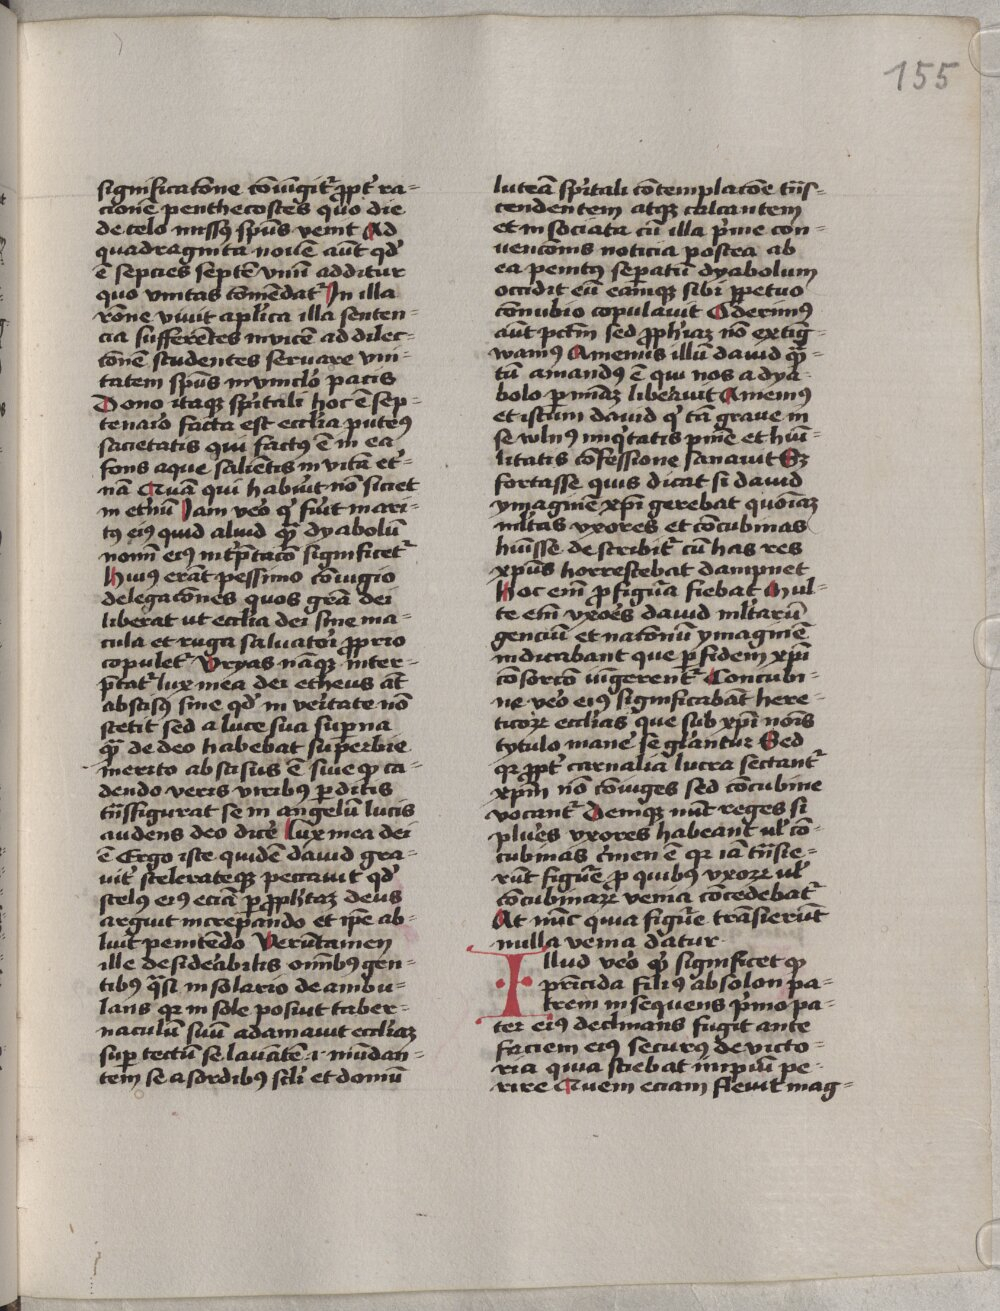 155
significatōne cōiūgit᷑ ꝓpt᷑ ra=
cionē penthecostēs quo die
de celo missꝰ spūs venit Ad
quadraginta nouē aūt qd̕
ē sepcies septē vnū additur
quo vnitas cōmēdat᷑ In illa
rōne viuit aplīca illa senten=
cia sufferētes inuicē ad dilec=
tōnē studentes seruare vni=
tatem spūs in vinclo pacis
Dono itaqꝫ spūtali hoc ē sep=
tenario facta est ecclīa puteꝰ
sacietatis qui factꝰ ē in ea
fons aque saliētis in vitā et᷑=
nā Quā qui habūit nō siciet
in et᷑nū Iam veōr qͥ fūit mari=
tꝰ eiꝰ quid aliud qͣꝫ dyabolū
nomī eiꝰ int̕p̄tacō significet᷑
Huius erāt pessimo cōiugio
delegacōnes quos grā dei
liberat ut ecclīa dei sine ma=
cula et ruga saluatori ꝓprio
copulet᷑ Vryas naqꝫ inter=
p̄tat᷑ lux mea dei etheus āt
abscisꝰ siue qd̕ in veritate nō
stetit sed a luce sua superna
qͣꝫ de deo habebat superbie
merito abscisus ē siue qͥ ca=
dendo veris viribꝰ perditis
trāsfigurat se in angelū lucis
audens deo dicere Lux mea dei
ē Ergo iste quidē dauid gra=
uit᷑ scelerateqꝫ peccauit qd̕
scelus eiꝰ eciā ꝑ ꝓphetaꝫ deus
arguit increpando et ipe ab=
luit penitēdo Verūtamen
ille desiderabilis omībꝰ gen=
tibꝰ qͣsi in solario deambu=
lans qꝛ in sole posuit taber=
naculū suū adamauit ecclīaꝫ
super tectū se lauātē ⁊ mūdan=
tem se a sordibꝰ scli et domū
luteā spūtali cōtemplacōe trās=
cendentem atqꝫ calcantem
et in sociata cū illa prīme con=
uencōnis noticia postea ab
ea penitꝰ sepatū dyabolum
occidit eū eamqꝫ sibi ꝑpetuo
cōnubio copulauit Oderimꝰ
aūt pctm̄ sed ꝓphīaꝫ nō extīg=
wamꝰ Amemus illū dauid qͣꝫ=
tū amandꝰ ē qui nos a dya=
bolo ꝑ mīaꝫ liberauit Amemꝰ
et istum dauid qͥ tā graue in
se vulnꝰ iniqͥtatis pnīe et hūi=
litatis cōfessione sanauit Sꝫ
fortasse quis dicat si dauid
ymaginē xp̄i gerebat quoīaꝫ
ml̄tas vxores et cōcubinas
hūisse describit᷑ cū has res
xp̄us horrescebat dampnet
Hoc em̄ ꝑ figurā fiebat Mul=
te em̄ vxores dauid ml̄tarū
genciū et natōnū ymaginē
indicabant que ꝑ fidem xp̄i
cōsorcō iūgerent᷑ Concubi=
ne veō eiꝰ significabāt here=
ticoꝝ ecclīas que sub xp̄i noīs
tytulo manē se glāntur Sed
qꝛ ꝓpt᷑ carnalia lucra sectant᷑
xp̄m nō cōiuges sed cōcubine
vocant᷑ Deniqꝫ nūc reges si
plures vxores habeant ul̄ cō=
cubinas c̕men ē qꝛ iā trāsie=
rūt figure ꝓ quibꝰ vxoꝝ ul̄
cōcubinaꝝ venia cōcedebat᷑
At nūc quia figure trāsierūt
nulla venia datur
Illud veō qͥd significet qͥ
pricida filiꝰ absolon pa=
trem insequens pͥmo pa=
ter eiꝰ declinans fugit ante
faciem eiꝰ securꝰ de victo=
ria quia sciebat impiū pe=
rire Quem eciam fleuit mag=